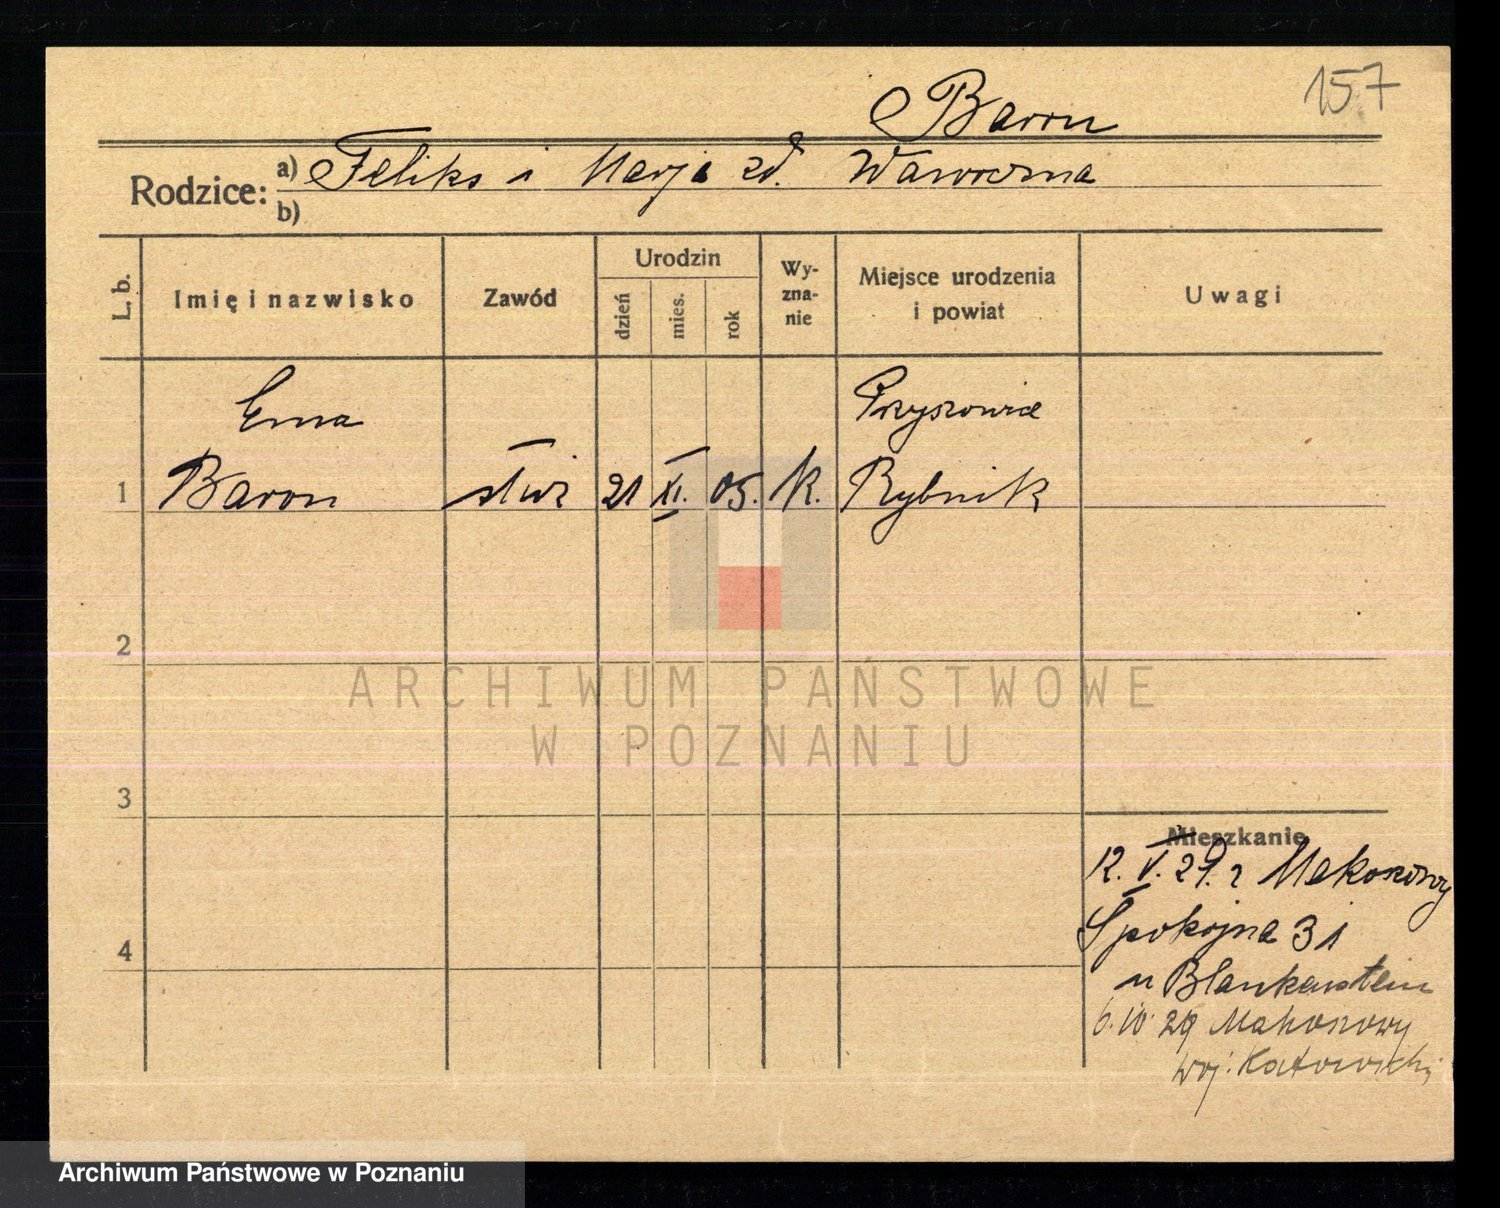 157
Baron
Rodzice: a) Feliks i Marja zd. Wawrczna
b)
L. b. Imię i nazwisko Zawód Urodzin dzień mies. rok Wyzna-nie Miejsce urodzenia i powiat Uwagi
Erna Przyszowice
1 Baron służ 21 XI. 05. K. Rybnik
2
ARCHIWUM PAŃSTWOWE
W POZNANIU
3
Mieszkanie
12. V. 29. z Makoszowy
4 Spokojna 31
u Blankenstein
6. IV 29 Makoszowy
woj. Katowickj
Archiwum Państwowe w Poznaniu